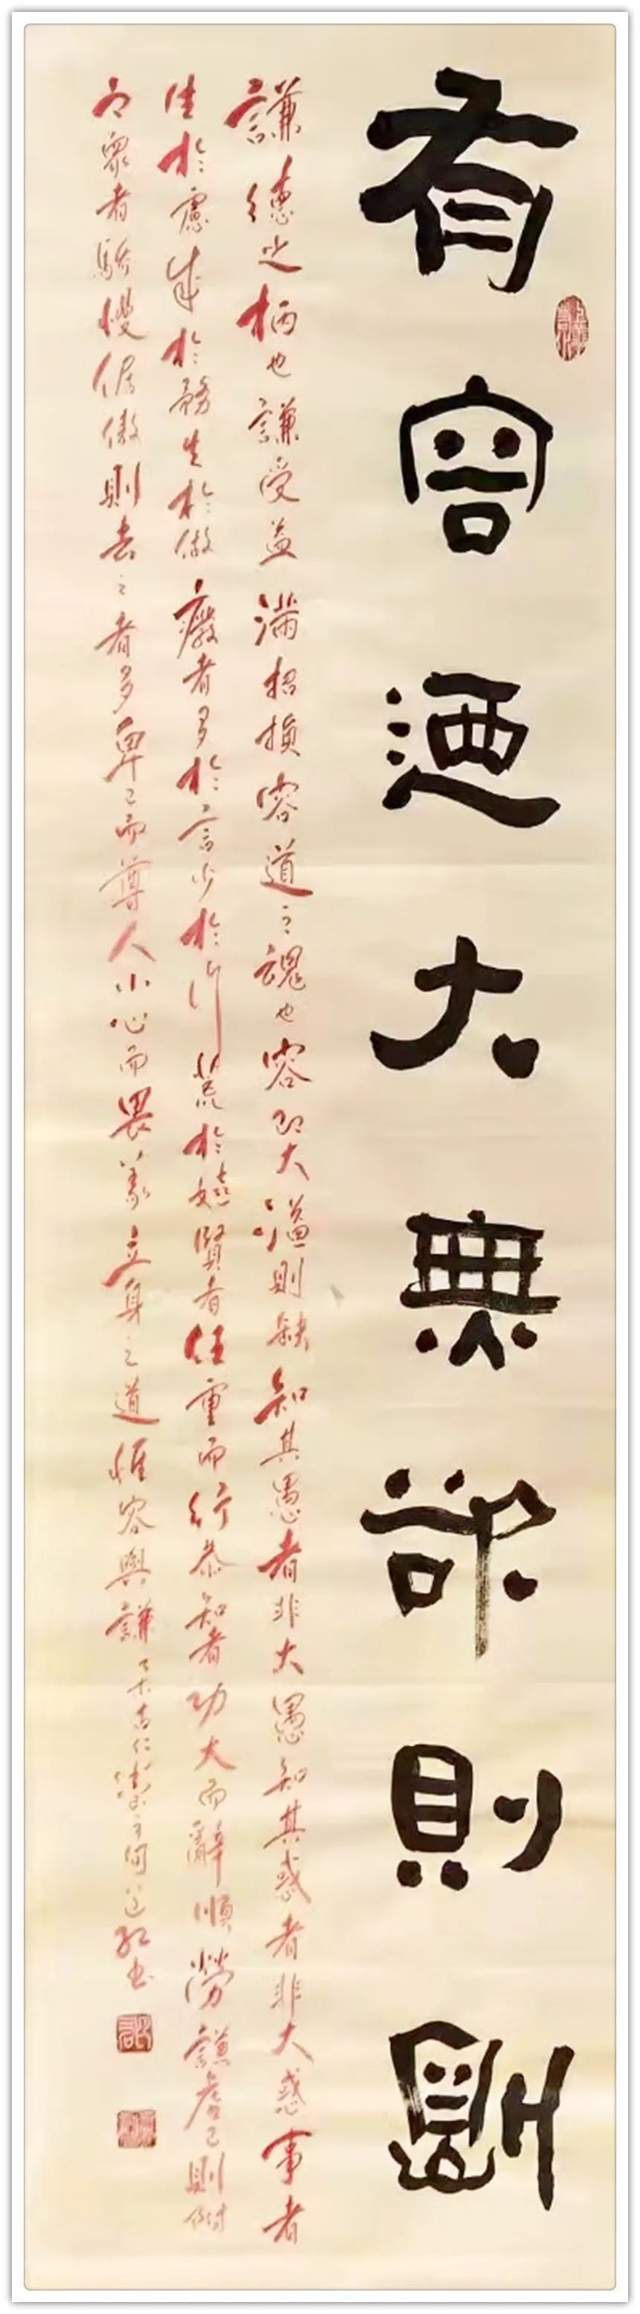 有容迺大無欲則剛
謙德之柄也謙受益滿招損容道之魂也容即大溢則缺知其愚者非大愚知其惑者非大惑事者
生於慮成於務生於做廢者多於言少於行荒於嬉賢者任重而行恭知者功大而辭順勞謙虛己則附
之眾者驕慢倨傲則去之者多卑己而尊人小心而畏義立身之道惟容與謙